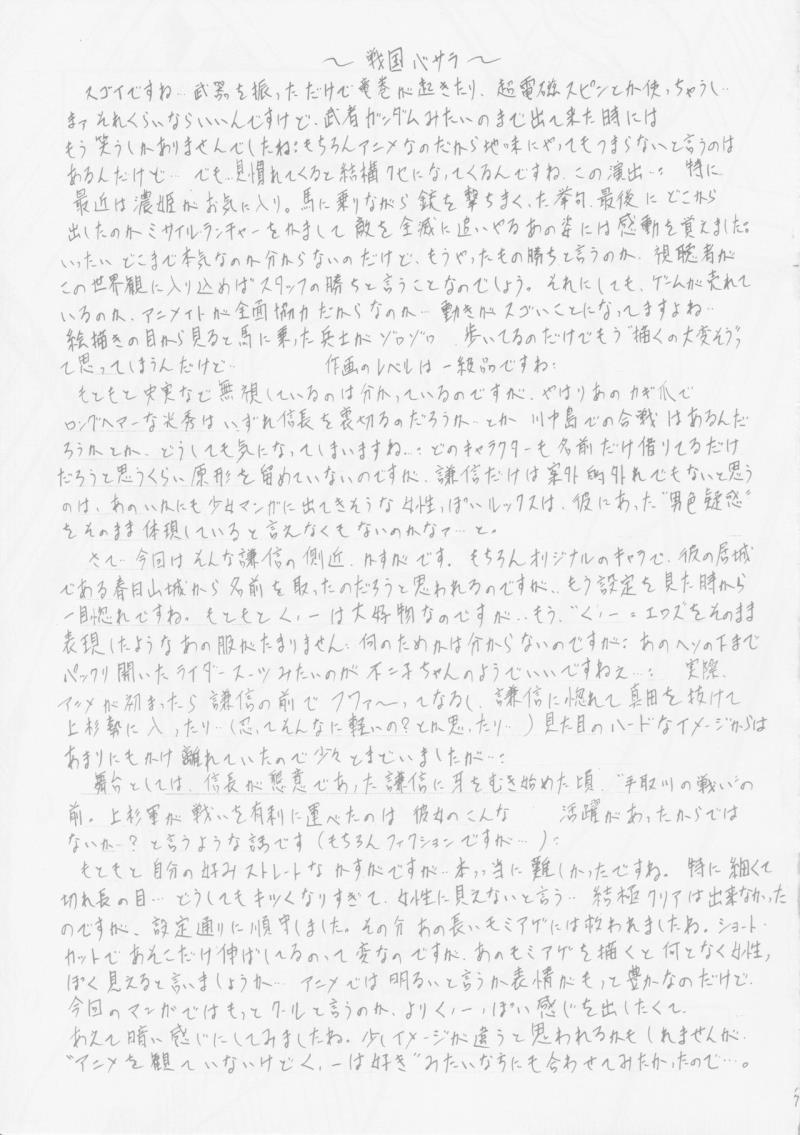 ～戦国バサラ～
スゴイですね…武器を振っただけで竜巻が起きたり、超電磁スピンとか使っちゃうし…
まァそれくらいならいいんですけど、武者ガンダムみたいのまで出て来た時には
もう笑うしかありませんでしたね…もちろんアニメなのだから地味にやってもつまらないと言うのは
あるんだけど…でも…見慣れてくると結構クセになってくるんですね、この演出…。特に
最近は濃姫がお気に入り。馬に乗りながら銃を撃ちまくった挙句、最後にどこから
出したのかミサイルランチャーをかまして敵を全滅に追いやるあの姿には感動を覚えました。
いったいどこまで本気なのか分からないのだけど、もうやったもの勝ちと言うのか、視聴者が
この世界観に入り込めばスタッフの勝ちと言うことなのでしょう。それにしても、ゲームが売れて
いるのか、アニメイトが全面協力だからなのか…動きがスゴいことになってますよね…
絵描きの目から見ると馬に乗った兵士がゾロゾロ 歩いてるのだけでもう“描くの大変そう”っ
て思ってしまうんだけど… 作画のレベルは一級品ですね…
もともと史実など無視しているのは分かっているのですが、やはりあのカギ爪で
ロングヘアーな光秀はいずれ信長を裏切るのだろうか…とか川中島での合戦はあるんだ
ろうかとか、どうしても気になってしまいますね…。どのキャラクターも名前だけ借りてるだけ
だろうと思うくらい原形を留めていないのですが、謙信だけは案外的外れでもないと思う
のは、あのいかにも少女マンガに出てきそうな女性っぽいルックスは、彼にあった“男色疑惑”
をそのまま体現していると言えなくもないのかなァ…と。
さて…今回はそんな謙信の側近、かすがです。もちろんオリジナルのキャラで、彼の居城
である春日山城から名前を取ったのだろうと思われるのですが…もう設定を見た時から
一目惚れですね。もともとくノ一は大好物なのですが…もう、“くノ一＝エロ”をそのまま
表現したようなあの服がたまりません…何のためかは分からないのですが…あのヘソの下まで
パックリ開いたライダースーツみたいのが不二子ちゃんのようでいいですねぇ…。実際、
アニメが初まったら謙信の前でフファ～ってなるし、謙信に惚れて真田を抜けて
上杉勢に入ったり…（忍ってそんなに軽いの？とか思ったり…）見た目のハードなイメージからは
あまりにもかけ離れていたので少々とまどいましたが…。
舞台としては、信長が懇意であった謙信に牙をむき始めた頃、“手取川の戦い”の
前。上杉軍が戦いを有利に運べたのは彼女のこんな 活躍があったからでは
ないか…？と言うような話です（もちろんフィクションですが…）。
もともと自分の好みストレートなかすがですが…本っ当に難しかったですね。特に細くて
切れ長の目…どうしてもキツくなりすぎて、女性に見えないと言う…結極クリアは出来なかった
のですが、設定通りに順守しました。その分あの長いモミアゲには救われましたね。ショート・
カットであそこだけ伸ばしてるのって変なのですが、あのモミアゲを描くと何となく女性っ
ぽく見えると言いましょうか…アニメでは明るいと言うか表情がもっと豊かなのだけど、
今回のマンガではもっとクールと言うのか、よりくノ一っぽい感じを出したくて、
あえて暗い感じにしてみましたね。少しイメージが違うと思われるかもしれませんが、
“アニメを観ていないけどくノ一は好き”みたいな方にも合わせてみたかったので…。